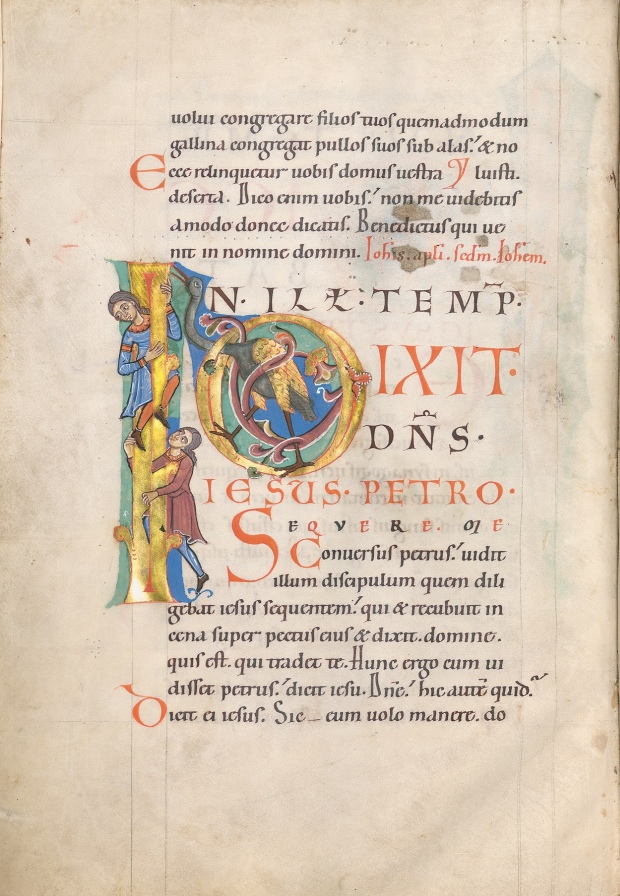 uolui congregare filios tuos quemadmodum
gallina congregat pullos suos sub alas.' & no
Ecce relinquetur uobis domus uestra luisti.
deserta. Dico enim uobis.' non me uidebitis
amodo donec dicatis. Benedictus qui ue
nit in nomine domini. Iohis. apli. sedm. Iohem.
IN. ILL: TEMP̅.
DIXIT.
DN̅S.
IESUS. PETRO.
SEQVERE ME
Conuersus petrus.' uidit
illum discipulum quem dili
gebat iesus sequentem.' qui & recubuit in
cena super pectus eius & dixit. domine.
quis est. qui tradet te. Hunc ergo cum ui
disset petrus.' dicit iesu. Dn̅e.' hic aute̅ quid.
Dicit ei iesus. Sic eum uolo manere. do